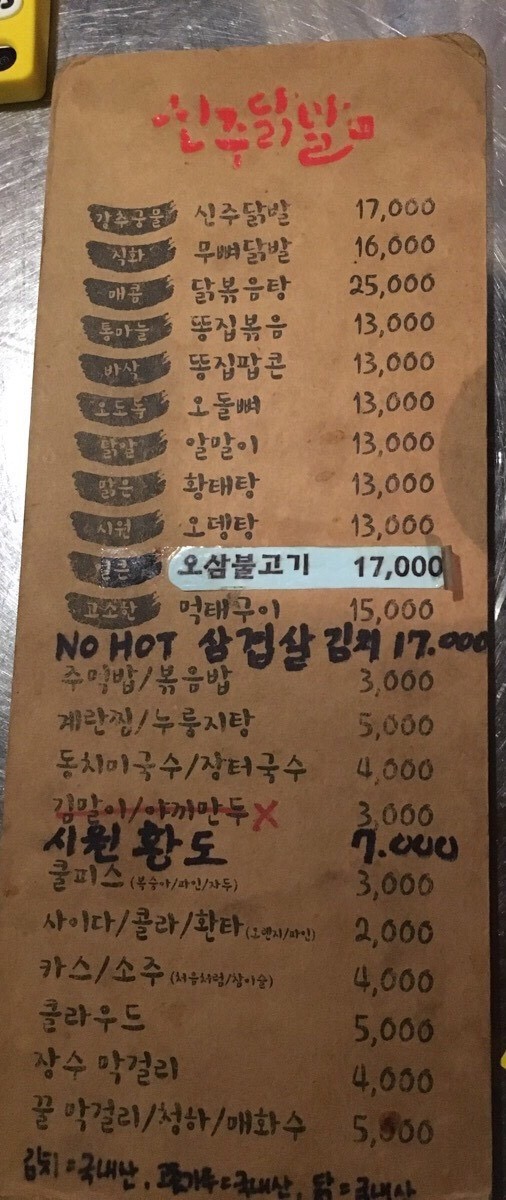 신주닭발
강추국물 신주닭발 17,000
직화 무뼈닭발 16,000
매콤 닭볶음탕 25,000
통마늘 똥집볶음 13,000
바삭 똥집팝콘 13,000
오도독 오돌뼈 13,000
닭알 알말이 13,000
맑은 황태탕 13,000
시원 오뎅탕 13,000
오삼불고기 17,000
고소한 먹태구이 15,000
NO HOT 삼겹살 김치 17.000
주먹밥/볶음밥 3,000
계란찜/누룽지탕 5,000
동치미국수/장터국수 4,000
김말이/야끼만두 X 3,000
시원 황도 7.000
쿨피스 (복숭아/파인/자두) 3,000
사이다/콜라/환타 (오렌지/파인) 2,000
카스/소주 (처음처럼/참이슬) 4,000
클라우드 5,000
장수 막걸리 4,000
꿀 막걸리/청하/매화수 5,000
김치=국내산, 고춧가루=국내산, 닭=국내산